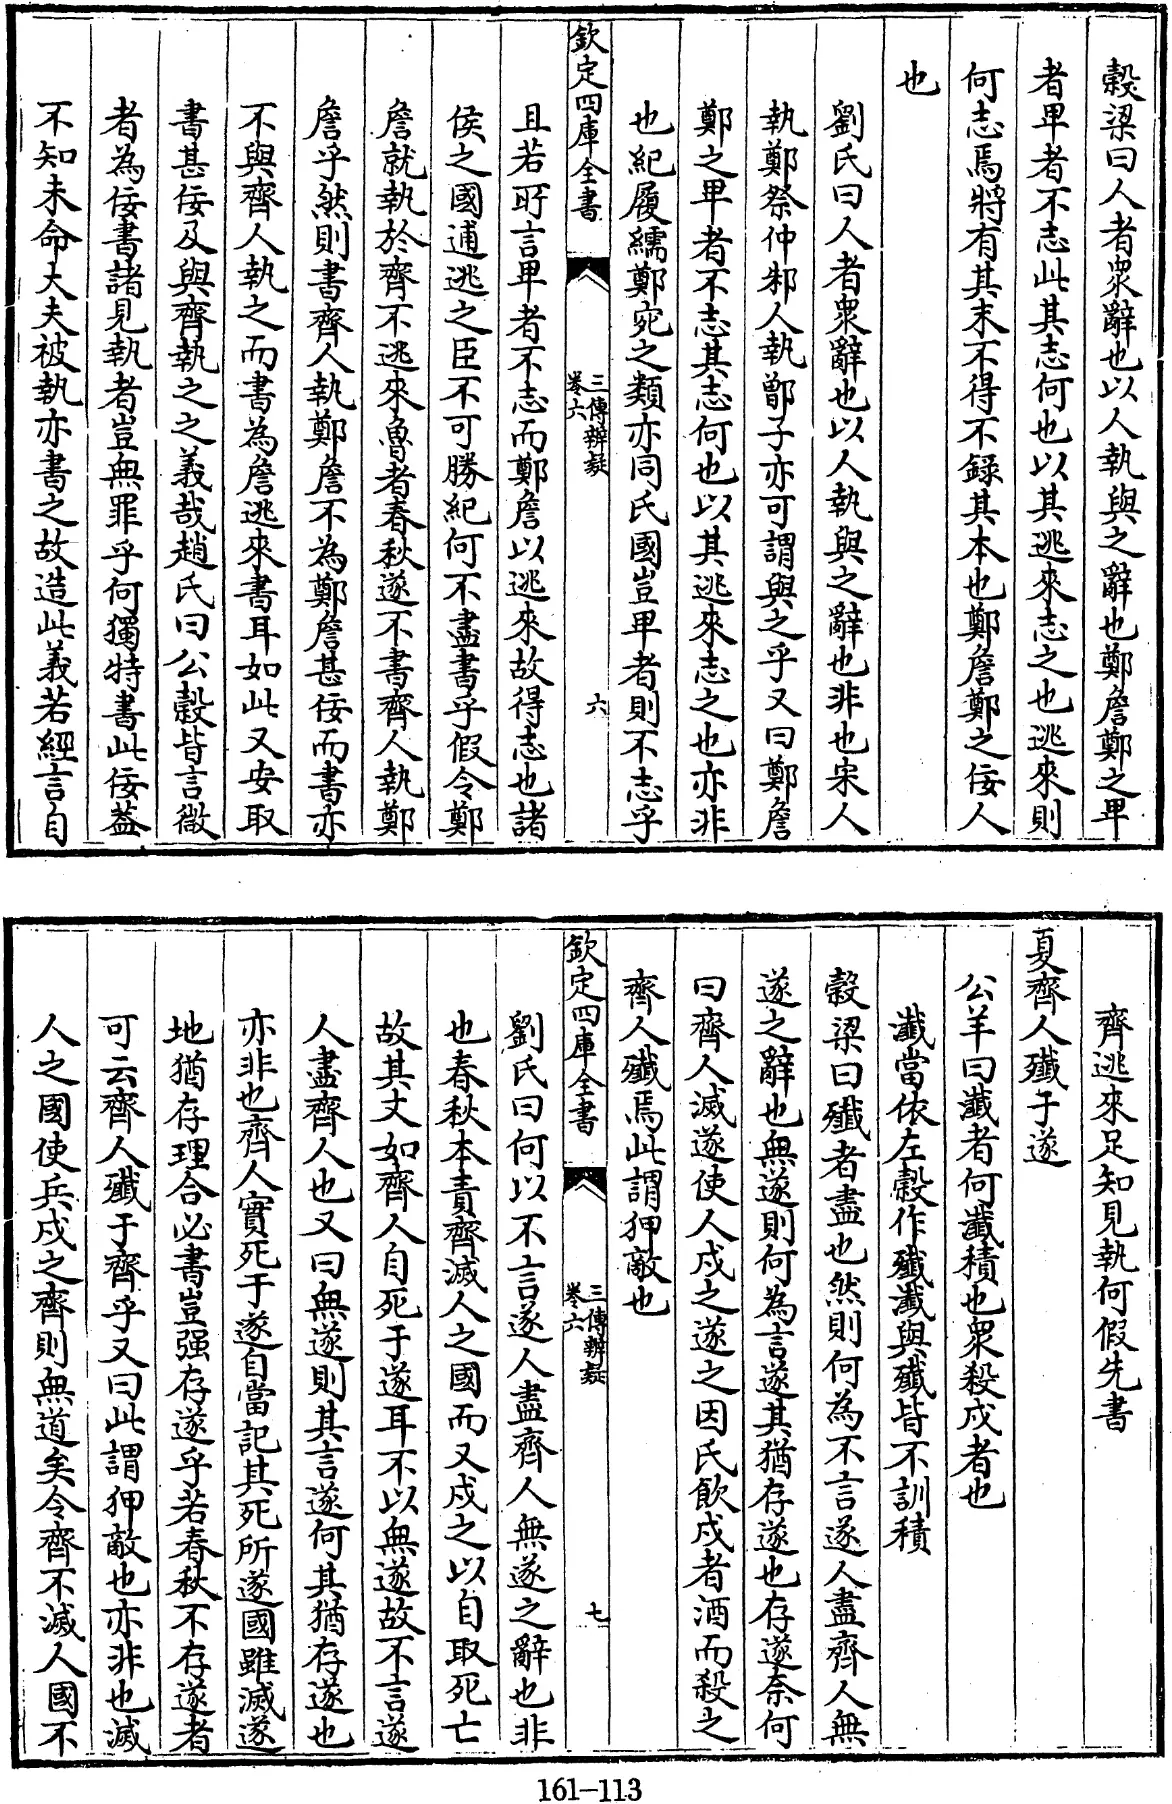 穀梁曰人者衆辭也以人執與之辭也鄭詹鄭之卑
者卑者不志此其志何也以其逃來志之也逃來則
何志焉將有其末不得不録其本也鄭詹鄭之佞人
也
劉氏曰人者衆辭也以人執與之辭也非也宋人
執鄭祭仲邾人執鄫子亦可謂與之乎又曰鄭詹
鄭之卑者不志其志何也以其逃來志之也亦非
也紀履繻鄭宛之類亦同氏國豈卑者則不志乎
欽定四庫全書
三傳辨疑
卷六
六
且若所言卑者不志而鄭詹以逃來故得志也諸
侯之國逋逃之臣不可勝紀何不盡書乎假令鄭
詹就執於齊不逃來魯者春秋遂不書齊人執鄭
詹乎然則書齊人執鄭詹不為鄭詹甚佞而書亦
不與齊人執之而書為詹逃來書耳如此又安取
書甚佞及與齊執之之義哉趙氏曰公穀皆言微
者為佞書諸見執者豈無罪乎何獨特書此佞葢
不知未命大夫被執亦書之故造此義若經言自
齊逃來足知見執何假先書
夏齊人殲于遂
公羊曰瀸者何瀸積也衆殺戍者也
瀸當依左穀作殲瀸與殲皆不訓積
穀梁曰殲者盡也然則何為不言遂人盡齊人無
遂之辭也無遂則何為言遂其猶存遂也存遂奈何
曰齊人滅遂使人戍之遂之因氏飲戍者酒而殺之
齊人殲焉此謂狎敵也
欽定四庫全書
三傳辨疑
卷六
七
劉氏曰何以不言遂人盡齊人無遂之辭也非
也春秋本責齊滅人之國而又戍之以自取死亡
故其文如齊人自死于遂耳不以無遂故不言遂
人盡齊人也又曰無遂則其言遂何其猶存遂也
亦非也齊人實死于遂自當記其死所遂國雖滅遂
地猶存理合必書豈强存遂乎若春秋不存遂者
可云齊人殲于齊乎又曰此謂狎敵也亦非也滅
人之國使兵戍之齊則無道矣令齊不滅人國不
161-113